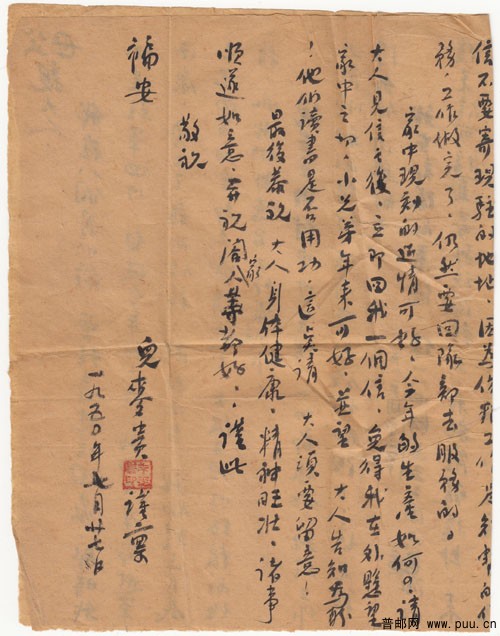 信不要寄現駐的地址，因為
務，工作做完了，仍然要回隊部去服務的。
家中現刻的近情可好，今年的生產如何？請
大人見信之後，立即回我一個信，免得我在外懸望
家中之切，小兄弟年來可好，並望 大人告知
，他們讀書是否用功，這点請 大人須要留意！
最後恭祝 大人身体健康，精神旺壯，諸事
順遂如意，并祝闔家人等均好，謹此
敬祝
福安
兒 李貴 謹稟
一九五〇年七月廿七日
普邮网 www.puu.cn